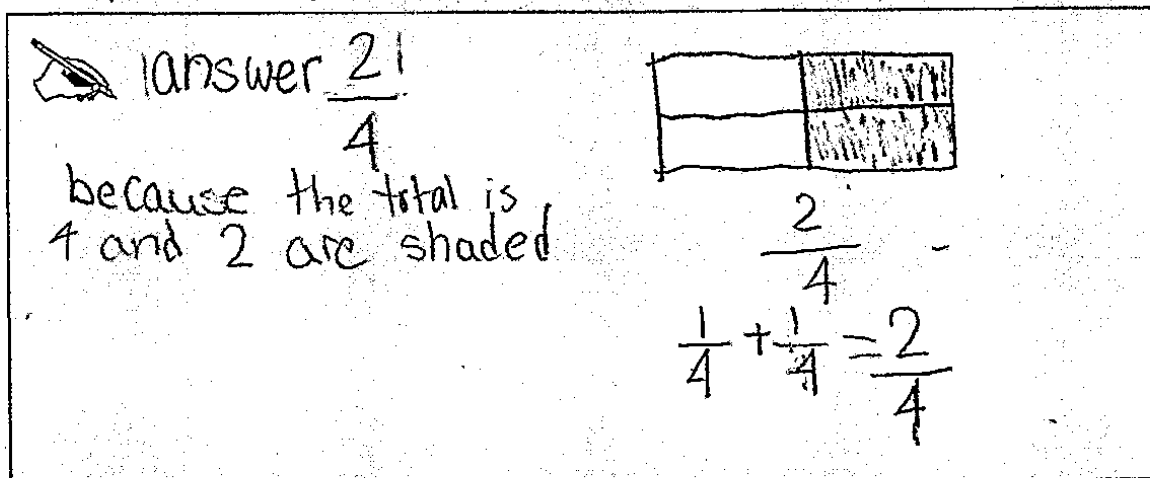 1answer 2!
4
because the total is
4 and 2 are shaded
2
4
1/4 + 1/4 = 2/4